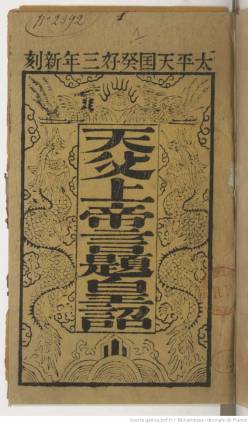 n° 2392
太平天囯癸好三年新刻
天父上帝言題皇詔
Source gallica.bnf.fr / Bibliothèque nationale de France